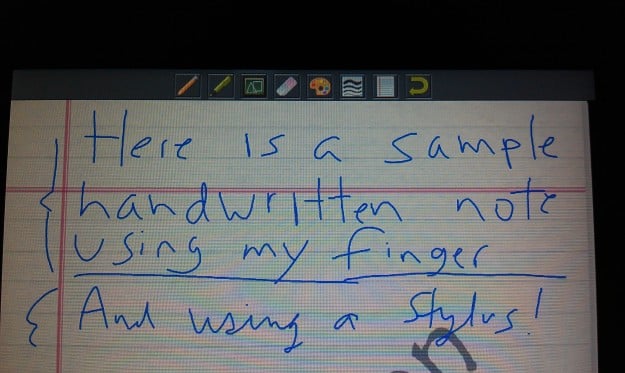 Here is a sample
handwritten note
using my finger
And using a stylus!